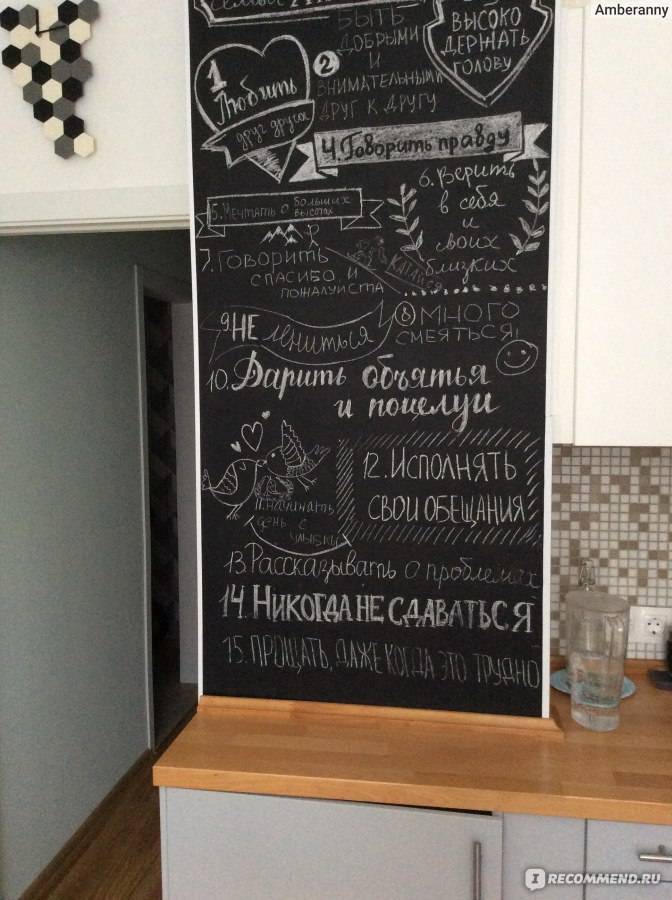 Amberanny
1
Любить
друг друга
2
БЫТЬ
ДОБРЫМИ
И
ВНИМАТЕЛЬНЫМИ
ДРУГ К ДРУГУ
ВЫСОКО
ДЕРЖАТЬ
ГОЛОВУ
4. Говорить правду
5. Мечтять о больших
высотах
6. Верить
в себя
и
своих
близких
7. ГОВОРИТЬ
СПАСИБО И
ПОЖАЛУИСТА
8 МНОГО
СМЕЯТЬСЯ!
9. НЕ лениться
10. Дарить объятья
и поцелуи
11. начинать
день с
улыбки
12. ИСПОЛНЯТЬ
СВОИ ОБЕЩАНИЯ
13. Рассказывать о проблемах
14. НИКОГДА НЕ СДАВАТЬСЯ
15. ПРОЩАТЬ, ДАЖЕ КОГДА ЭТО ТРУДНО
IRECOMMEND.RU